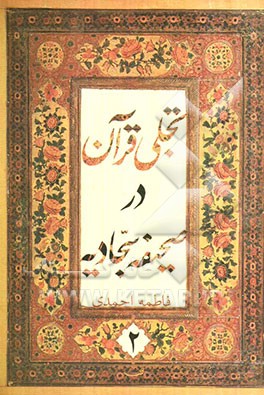 تجلی قرآن
در
صحیفه سجادیه
فاطمه احمدی
۲